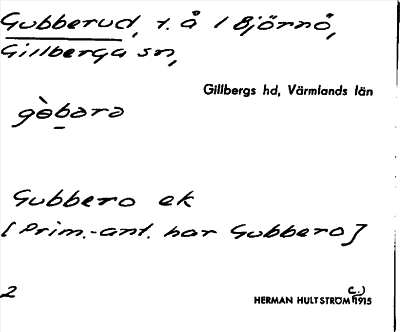 Gubberud, t. å / Björnö,
Gillberga sn,
Gillbergs hd, Värmlands län
gòbara
Gubbero ek
[Prim.-ant. har Gubbero]
2
c.)
HERMAN HULTSTRÖM 1915